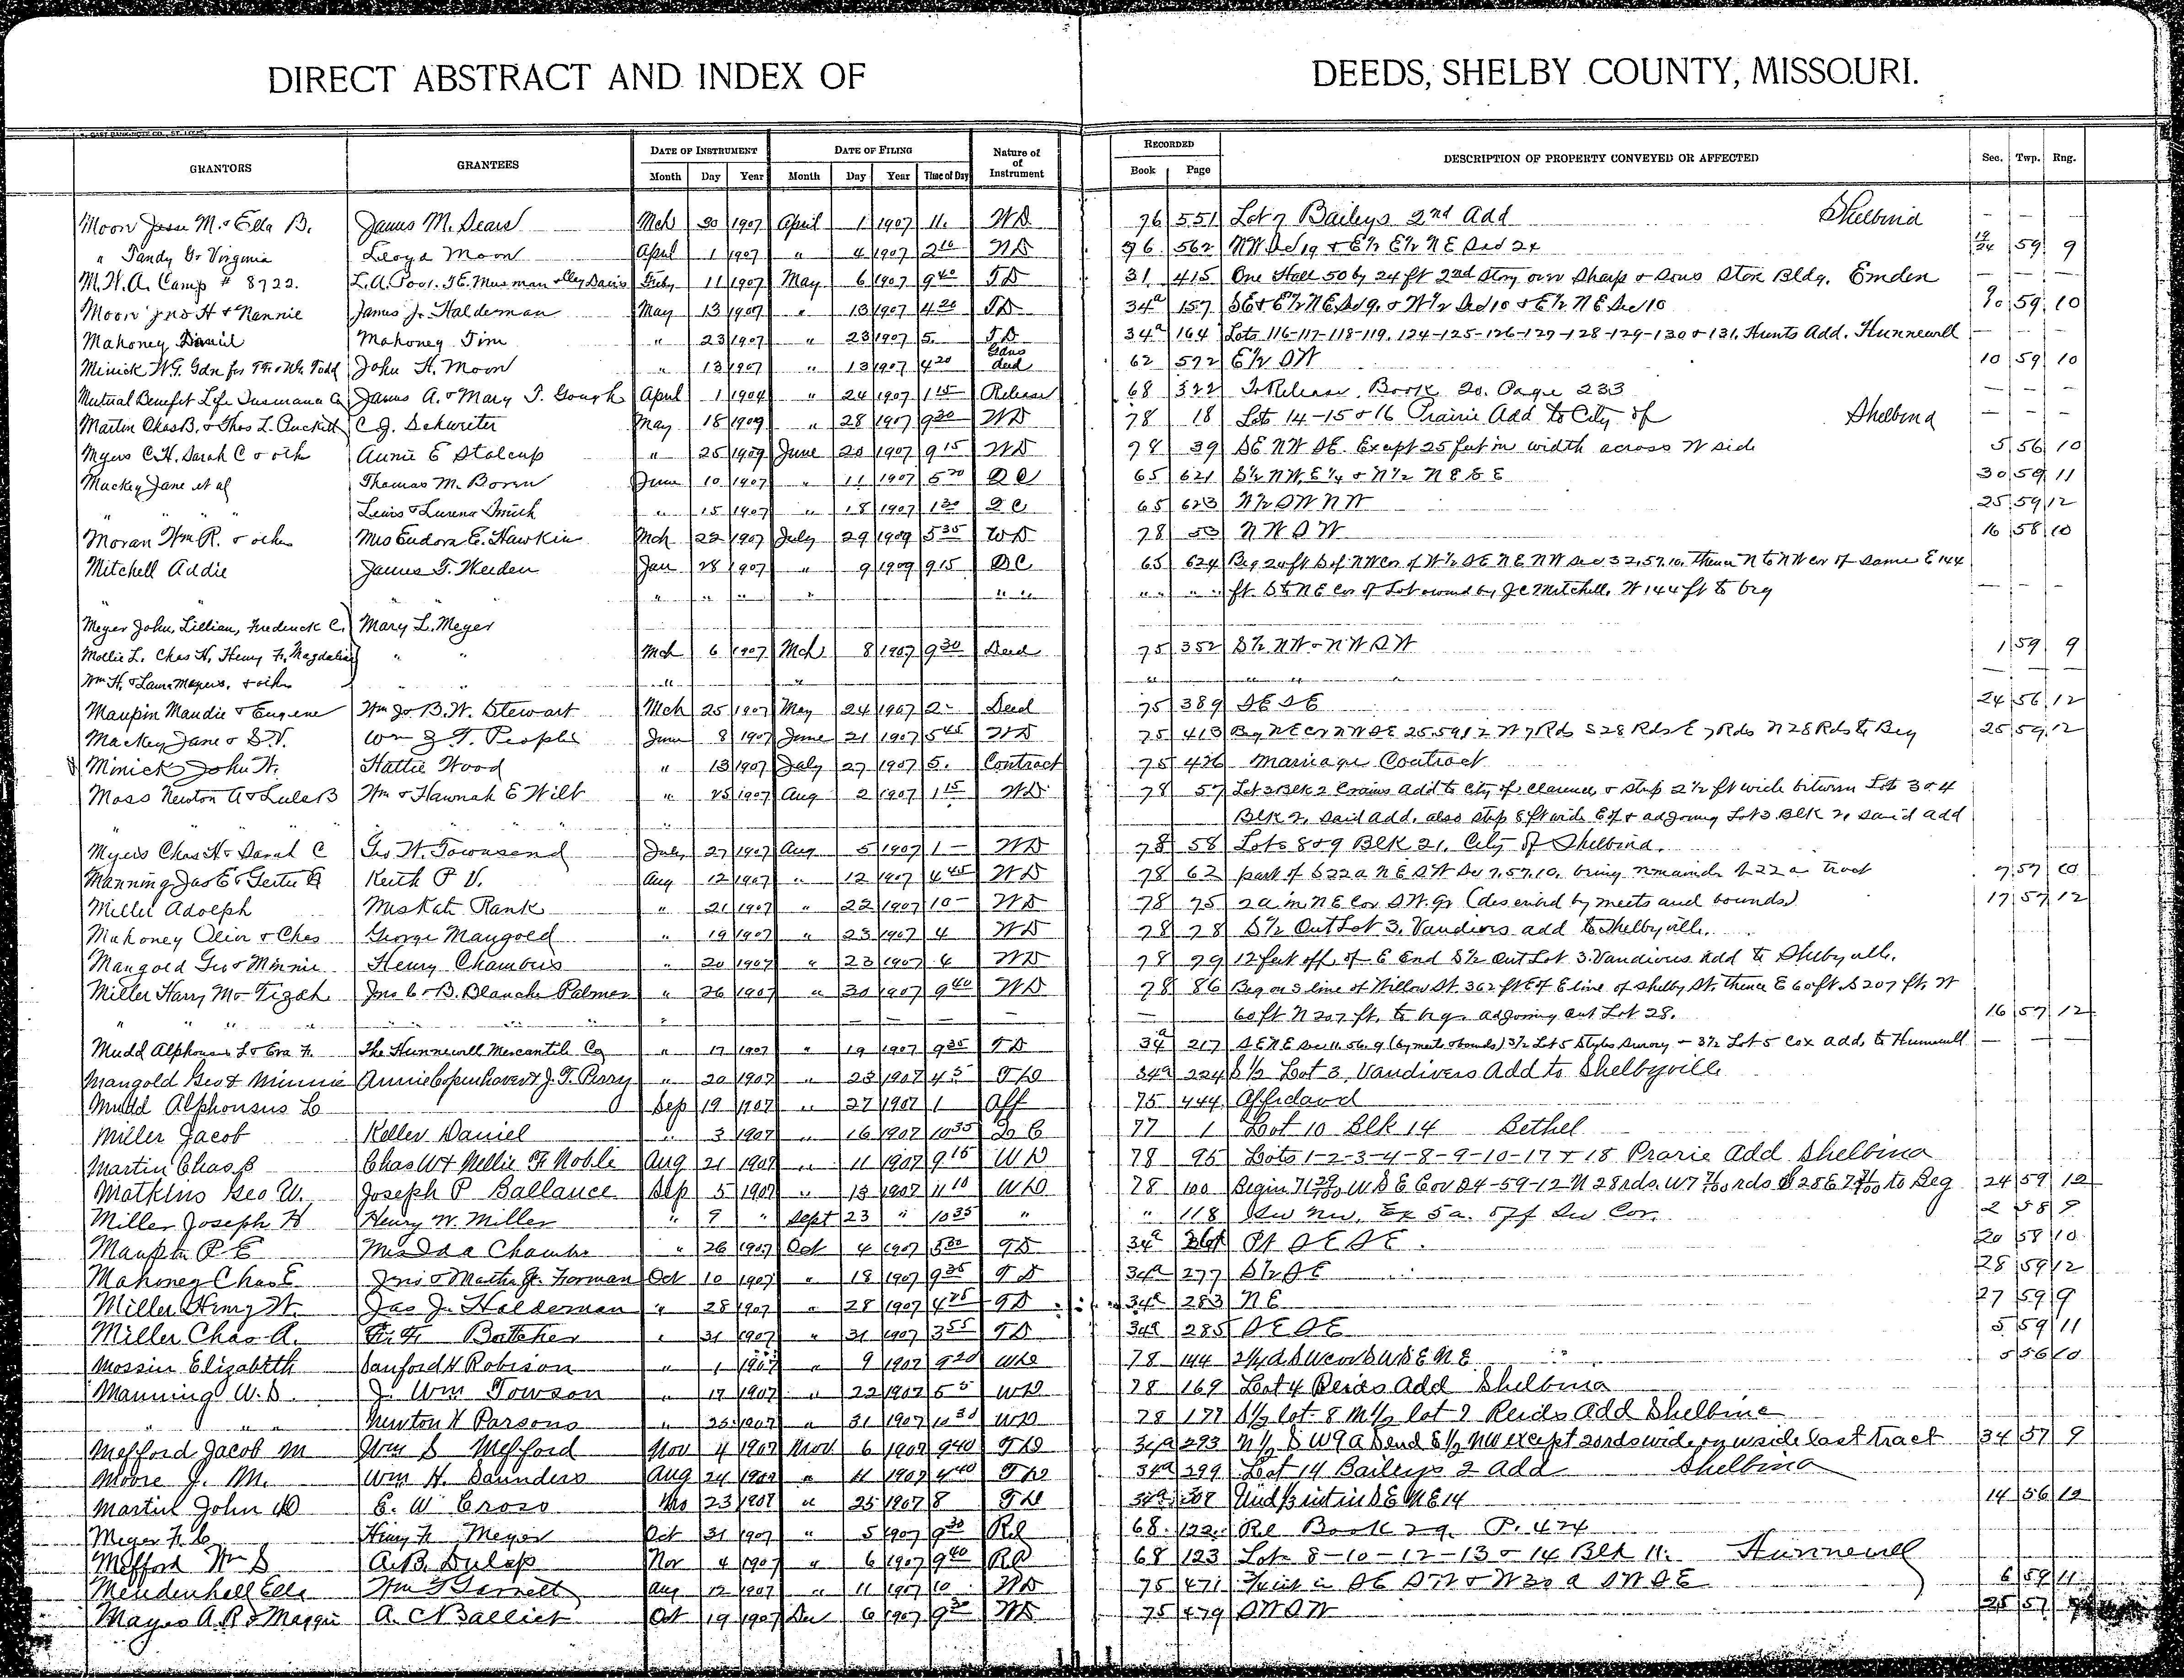 DIRECT ABSTRACT AND INDEX OF DEEDS, SHELBY COUNTY, MISSOURI.
GRANTORS GRANTEES DATE OF INSTRUMENT DATE OF FILING Nature of of Instrument RECORDED DESCRIPTION OF PROPERTY CONVEYED OR AFFECTED Sec. Twp. Rng.
Month Day Year Month Day Year Time of Day Book Page
Moon Jesse M. & Ella B. James M. Sears Mch 30 1907 April 1 1907 11. WD 76 551 Lot 7 Baileys 2nd Add Shelbina — — —
" Tandy G & Virginia Lloyd Moon April 1 1907 " 4 1907 2 10 WD 76 562 NW Sec 19 & E½ E½ NE Sec 24 19/24 59 9
M.W.A. Camp # 8722. 11 1907 May 6 1907 9 40 TD 31 415 One Hall 50 by 24 ft 2nd Story over Sharp & Sons Store Bldg. Emden — — —
Moon Jno H & Nannie James J. Haldeman May 13 1907 " 13 1907 4 20 TD 34a 157 SE & E½ NE Sec 9, & W½ Sec 10 & E½ NE Sec 10 9/10 59 10
Mahoney Daniel Mahoney Tim " 23 1907 " 23 1907 5. TD 34a 164 Lots 116-117-118-119, 124-125-126-127-128-129-130 & 131, Hunts Add. Hunnewell — — —
Minick W.G. Gdn for Todd John H. Moon " 13 1907 " 13 1907 4 20 Gdns deed 62 572 E½ SW 10 59 10
Mutual Benefit Life Insurance Co James A. & Mary T. Gough April 1 1904 " 24 1907 1 15 Release 68 322 To Release Book 20. Page 233 — — —
Martin Chas B. & Thos L. Puckett C.J. Schwieter May 18 1909 " 28 1907 9 30 WD 78 18 Lots 14-15 & 16 Prairie Add to City of Shelbina — — —
Myers C.H. Sarah C & oth Annie E Stalcup " 25 1909 June 20 1907 9 15 WD 78 39 SE NW SE. Except 25 feet in width across W side 5 56 10
Mackey Jane et al Thomas M. Boren June 10 1907 " 11 1907 5 20 QC 65 621 30 59 11
" " " Lewis & Lurena Smith " 15 1907 " 18 1907 1 30 QC 65 623 N½ SW NW 25 59 12
Moran Wm R. & others Mrs Eudora E. Hawkins Mch 22 1907 July 29 1909 5 35 WD 78 53 NW SW 16 58 10
Mitchell Addie James T. Weeden Jan 28 1907 " 9 1909 9 15 QC 65 624 Beg 20 ft S of NW Cor of W½ SE NE NW Sec 32, 57, 10, thence N to NW cor of same E 144
" " " " " " " " " " ft. S to NE Cor of Lot owned by J C Mitchell, W 144 ft to beg — — —
Meyer John, Lillian, Frederick C. Mary L. Meyer
Mollie L. Chas H. Henry F. Magdalina " " Mch 6 1907 Mch 8 1907 9 30 Deed 75 352 S½ NW & NW SW 1 59 9
Wm H. & Laura Meyers, & oth " " " " " " — — —
Maupin Maudie & Eugene B.W. Stewart Mch 25 1907 May 24 1907 2 - Deed 75 389 SE SE 24 56 12
Mackey Jane & S.V. Wm & T. Peoples June 8 1907 June 21 1907 5 45 WD 75 413 Beg NE Cor NW SE 25.59.12 W 7 Rds S 28 Rds E 7 Rds N 28 Rds to Beg 25 59 12
Minick John W. Hattie Wood " 13 1907 July 27 1907 5. Contract 75 426 Marriage Contract
Moss Newton A & Lula B Wm & Hannah E Wilt " 25 1907 Aug 2 1907 1 15 WD 78 57 Lot 3 Blk 2 Crains Add to City of Clarence & strip 2½ ft wide between Lot 3 & 4
" " " " Blk 2, said add, also strip 8 ft wide E of & adjoining Lot 3 Blk 2, said add
Myers Chas H & Sarah C Geo W. Townsend July 27 1907 Aug 5 1907 1 — WD 78 58 Lots 8 & 9 Blk 21, City of Shelbina.
Manning Jas E & Gertie Keith P V. Aug 12 1907 " 12 1907 4 45 WD 78 62 part of S 22 a NE SW Sec 7, 57, 10, being remainder of 22 a tract 7 57 10
Miller Adolph Miss Kate Rank " 21 1907 " 22 1907 10 - WD 78 75 2 a in NE Cor SW. Qr (described by meets and bounds) 17 57 12
Mahoney Olive & Chas George Mangold " 19 1907 " 23 1907 4 WD 78 78 S½ Out Lot 3, Vandivers add to Shelbyville.
Mangold Geo & Minnie Henry Chambers " 20 1907 " 23 1907 4 WD 78 79 12 feet off of E End S½ Out Lot 3. Vandivers Add to Shelbyville.
Miller Harry M & Tizah Jno C & B. Blanche Palmer " 26 1907 " 30 1907 9 40 WD 78 86 Beg on S line of Willow St. 362 ft E of E line of Shelby St. thence E 60 ft. S 207 ft. W
" " " " " " — — — — — 60 ft N 207 ft. to beg. adjoining Out Lot 28. 16 57 12
Mudd Alphonsus L & Eva F. The Hunnewell Mercantile Co " 17 1907 " 19 1907 9 35 TD 34a 217 SE NE Sec 11. 56. 9 (by meets & bounds) 3½ Lot 5 Styles Survey - 3½ Lot 5 Cox add, to Hunnewell — — —
Mangold Geo & Minnie Annie Copenhaver & J.T. Perry " 20 1907 " 23 1907 4 5 TD 34a 224 S½ Lot 3, Vandivers Add to Shelbyville
Mudd Alphonsus L Sep 19 1907 " 27 1907 1 Aff 75 444 Affidavid
Miller Jacob Keller Daniel " 3 1907 " 16 1907 10 35 Q C 77 1 Lot 10 Blk 14 Bethel
Martin Chas B Chas W & Nellie F Noble Aug 21 1907 " 11 1907 9 15 WD 78 95 Lots 1-2-3-4-8-9-10-17 & 18 Prarie Add Shelbina
Matkins Geo W. Joseph P Ballance Sep 5 1907 " 13 1907 11 10 WD 78 100 24 59 12
Miller Joseph H Henry W. Miller " 9 " Sept 23 " 10 35 " " 118 SW NW, Ex 5 a. off SW Cor. 2 58 9
Maupin P E Mrs Ida Chambers " 26 1907 Oct 4 1907 TD 34a Pt SE SE. 20 58 10
Mahoney Chas E Jno & Martha J. Forman Oct 10 1907 " 18 1907 9 35 TD 34a 277 S½ SE 28 59 12
Miller Henry W. Jas J. Haldeman " 28 1907 " 28 1907 4 25 TD 34a 283 NE 27 59 9
Miller Chas A. Botcher " 31 1907 " 31 1907 3 55 TD 34a 285 SE SE 5 59 11
Mossin Elizabeth Sanford H Robison " 1 1907 " 9 1907 9 20 WD 78 144 5 56 10
Manning W.D. J. Wm Towson " 17 1907 " 22 1907 5 5 WD 78 169 Lot 4 Reids Add Shelbina
" " " Newton H Parsons " 25 1907 " 31 1907 10 30 WD 78 177 S½ lot 8 N½ lot 9 Reids Add Shelbina
Mefford Jacob M Wm S Mefford Nov 4 1907 Nov 6 1907 9 40 TD 34a 293 34 57 9
Moore J. M. Wm H. Saunders Aug 24 1907 " 11 1907 4 40 TD 34a 299 Lot 14 Baileys 2 Add Shelbina
Martin John E. W Cross 23 1907 " 25 1907 8 TD 34a 14 56 12
Meyer F. C Henry F. Meyer Oct 31 1907 " 5 1907 9 30 Rel 68 122 Rel Book 29. P. 424
Mefford Wm S A.B. Dulap Nov 4 1907 " 6 1907 9 40 Rel 68 123 Lots 8-10-12-13 & 14 Blk 11. Hunnewell
Mendenhall Ella Wm T Garnett Aug 12 1907 " 11 1907 10 WD 75 471 6 59 11
Mayes A.R & Maggie A. C Balliet Oct 19 1907 Dec 6 1907 9 30 WD 75 479 SW SW 25 57